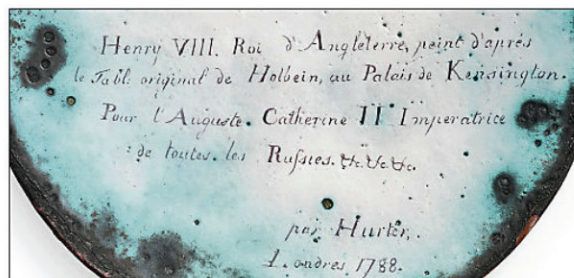 Henry VIII. Roi d'Angleterre, peint d'aprés
le Tabl. original de Holbein, au Palais de Kensington.
Pour l'Auguste. Catherine II Imperatrice
de toutes. les Rußies. &c. &c. &c.
par Hurter.
Londres 1788.